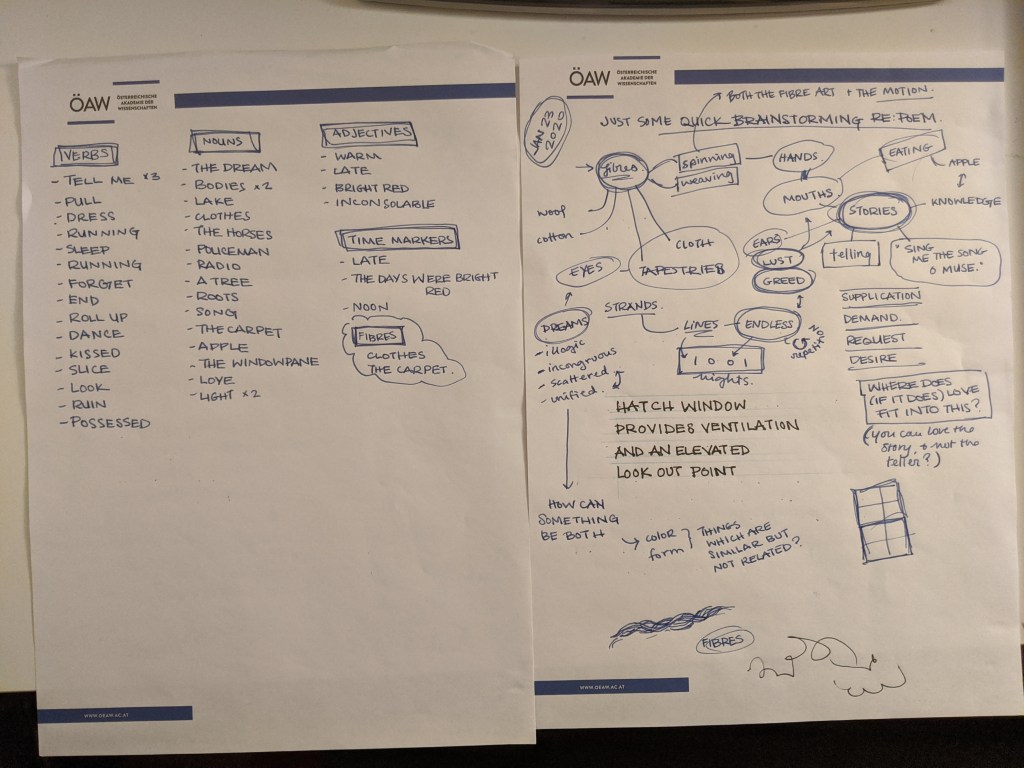 ÖAW
ÖSTERREICHISCHE
AKADEMIE DER
WISSENSCHAFTEN
VERBS
- TELL ME ×3
- PULL
- DRESS
- RUNNING
- SLEEP
- RUNNING
- FORGET
- END
- ROLL UP
- DANCE
- KISSED
- SLICE
- LOOK
- RUIN
- POSSESSED
NOUNS
- THE DREAM
- BODIES ×2
- LAKE
- CLOTHES
- THE HORSES
- POLICEMAN
- RADIO
- A TREE
- ROOTS
- SONG
- THE CARPET
- APPLE
- THE WINDOWPANE
- LOVE
- LIGHT ×2
ADJECTIVES
- WARM
- LATE
- BRIGHT RED
- INCONSOLABLE
TIME MARKERS
- LATE
- THE DAYS WERE BRIGHT
RED
- NOON
FIBRES
CLOTHES
THE CARPET.
WWW.OEAW.AC.AT
ÖAW
ÖSTERREICHISCHE
AKADEMIE DER
WISSENSCHAFTEN
JAN 23
2020
BOTH THE FIBRE ART + THE MOTION.
JUST SOME QUICK BRAINSTORMING RE: POEM.
fibres
spinning
weaving
HANDS.
EATING
APPLE
KNOWLEDGE
MOUTHS
STORIES
woof
cotton
CLOTH
TAPESTRIES
EYES
EARS
LUST
GREED
telling
"SING
ME THE SONG
O MUSE."
DREAMS
- illogic
- incongruous
- scattered
- unified.
STRANDS.
LINES
ENDLESS
NO
repetition
1001
nights.
SUPPLICATION
DEMAND.
REQUEST
DESIRE
WHERE DOES
(IF IT DOES) LOVE
FIT INTO THIS?
(you can love the
story, + not the
teller?)
HATCH WINDOW
PROVIDES VENTILATION
AND AN ELEVATED
LOOK OUT POINT
HOW CAN
SOMETHING
BE BOTH
color
form
THINGS
WHICH ARE
SIMILAR BUT
NOT RELATED?
FIBRES
WWW.OEAW.AC.AT